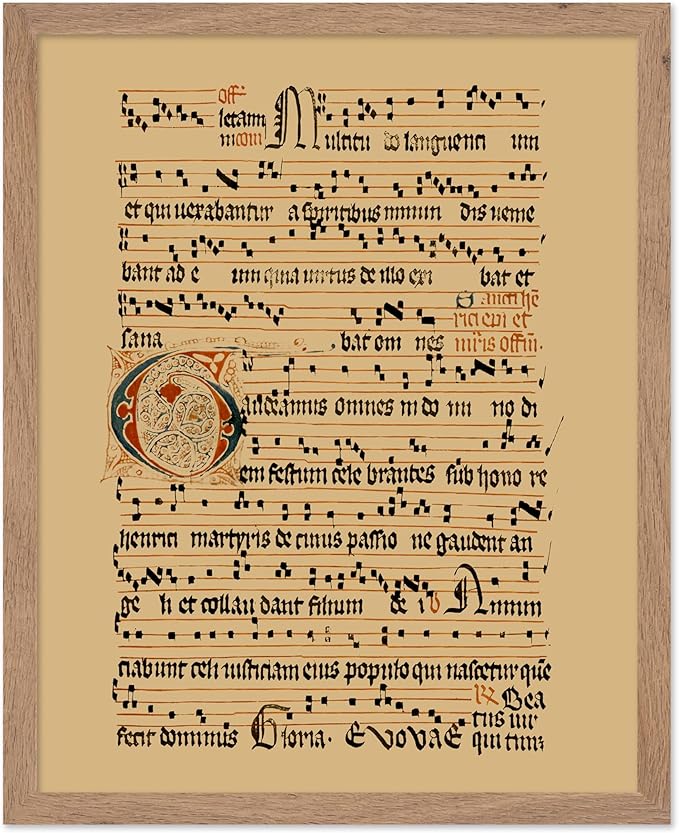 off
letam Multitu do languenti um
ni com
et qui uexabantur a spiritibus inmun dis uenie
bant ad e um quia uirtus de illo exi bat et
Sancti hē
rici epi et
sana bat om nes mr̄is offm̄.
Gaudeamus omnes in do mi no di
em festum cele brantes sub hono re
henrici martyris de cuius passio ne gaudent an
ge li et collau dant filium de i v Annun
ciabunt celi iusticiam eius populo qui nascetur quē
R Bea
tus uir
fecit dominus Gloria. EVOVAE qui tim;